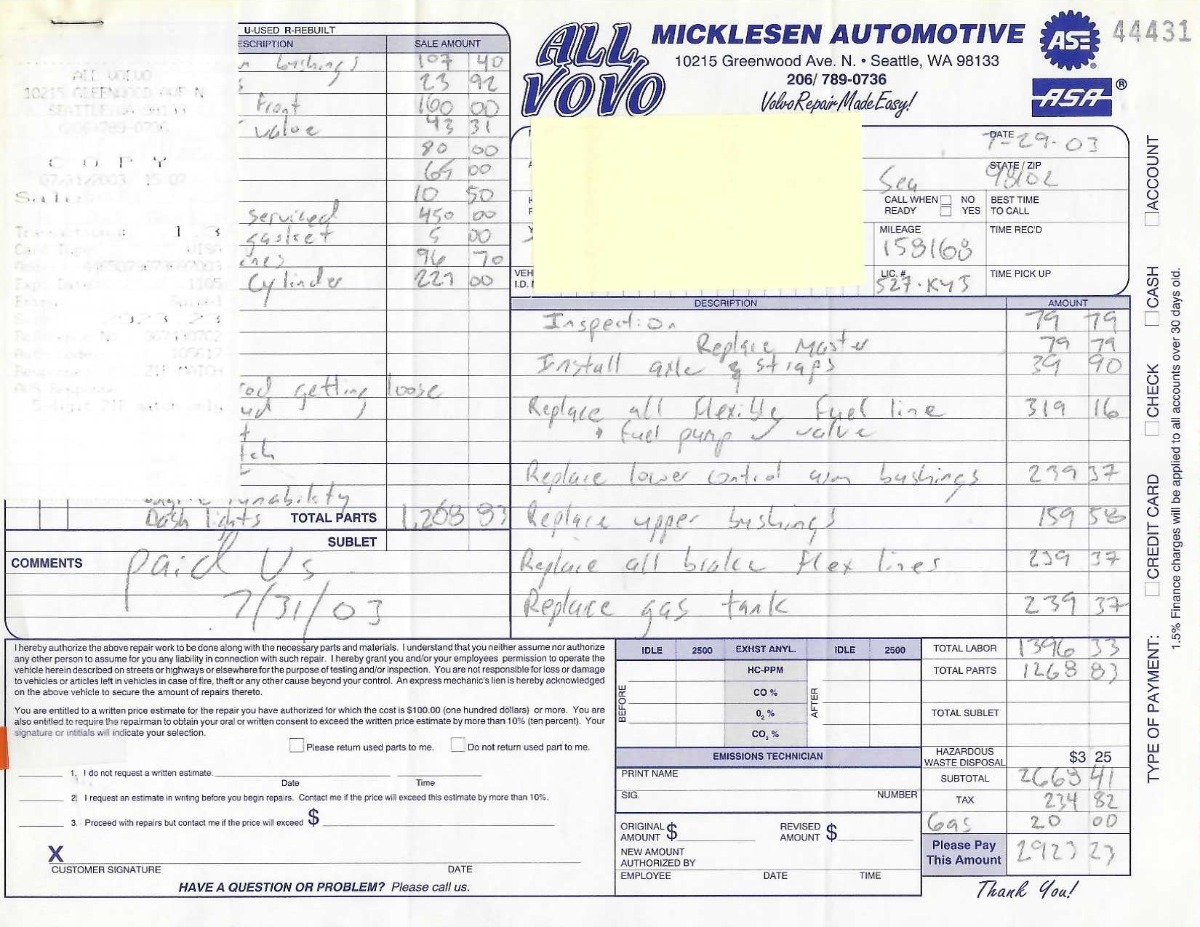 U-USED R-REBUILT
ESCRIPTION SALE AMOUNT
bushings 107 40
23 92
Front 160 00
valve 43 31
80 00
65 00
10 50
serviced 450 00
gasket 5 00
ines 96 70
Cylinder 227 00
rod getting loose
runability
Dash lights TOTAL PARTS 1,268 83
SUBLET
COMMENTS Paid Vs
7/31/03
ALL VOLVO
10215 GREENWOOD AVE N
SEATTLE WA 98133
COPY
07/31/2003 15:07
Sale
VISA
2923.23
ZIP MATCH
ALL VOVO
MICKLESEN AUTOMOTIVE
10215 Greenwood Ave. N. • Seattle, WA 98133
206/ 789-0736
Volvo Repair Made Easy!
ASE
ASA ®
44431
DATE 7-29-03
STATE / ZIP
Sea 98102
CALL WHEN READY NO YES
BEST TIME TO CALL
MILEAGE 158168
TIME REC'D
LIC. # 527-KYJ
TIME PICK UP
VEH
I.D.
DESCRIPTION AMOUNT
Inspection 79 79
Replace Master 79 79
Install axle & straps 39 90
Replace all flexible fuel line 319 16
+ fuel pump valve
Replace lower control arm bushings 239 37
Replace upper bushings 159 58
Replace all brake flex lines 239 37
Replace gas tank 239 37
I hereby authorize the above repair work to be done along with the necessary parts and materials. I understand that you neither assume nor authorize
any other person to assume for you any liability in connection with such repair. I hereby grant you and/or your employees permission to operate the
vehicle herein described on streets or highways or elsewhere for the purpose of testing and/or inspection. You are not responsible for loss or damage
to vehicles or articles left in vehicles in case of fire, theft or any other cause beyond your control. An express mechanic's lien is hereby acknowledged
on the above vehicle to secure the amount of repairs thereto.
You are entitled to a written price estimate for the repair you have authorized for which the cost is $100.00 (one hundred dollars) or more. You are
also entitled to require the repairman to obtain your oral or written consent to exceed the written price estimate by more than 10% (ten percent). Your
signature or intitials will indicate your selection.
Please return used parts to me. Do not return used part to me.
1. I do not request a written estimate.
Date Time
2. I request an estimate in writing before you begin repairs. Contact me if the price will exceed this estimate by more than 10%.
3. Proceed with repairs but contact me if the price will exceed $
X
CUSTOMER SIGNATURE DATE
HAVE A QUESTION OR PROBLEM? Please call us.
IDLE 2500 EXHST ANYL. IDLE 2500
BEFORE
HC-PPM
CO %
O2 %
CO2 %
AFTER
EMISSIONS TECHNICIAN
PRINT NAME
SIG. NUMBER
ORIGINAL AMOUNT $ REVISED AMOUNT $
NEW AMOUNT
AUTHORIZED BY
EMPLOYEE DATE TIME
TOTAL LABOR 1396 33
TOTAL PARTS 1268 83
TOTAL SUBLET
HAZARDOUS WASTE DISPOSAL $3 25
SUBTOTAL 2668 41
TAX 234 82
Gas 20 00
Please Pay This Amount 2923 23
Thank You!
TYPE OF PAYMENT: CREDIT CARD CHECK CASH ACCOUNT
1.5% Finance charges will be applied to all accounts over 30 days old.